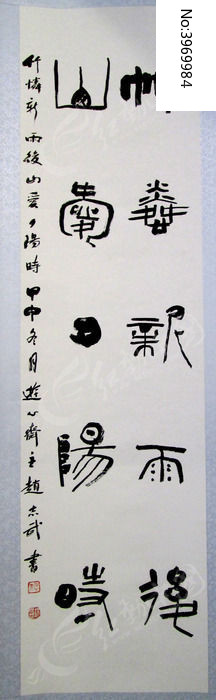 竹憐新雨後
山愛夕陽時
竹憐新雨後山愛夕陽時甲申冬月遊心齋主趙志武書
No:3969984